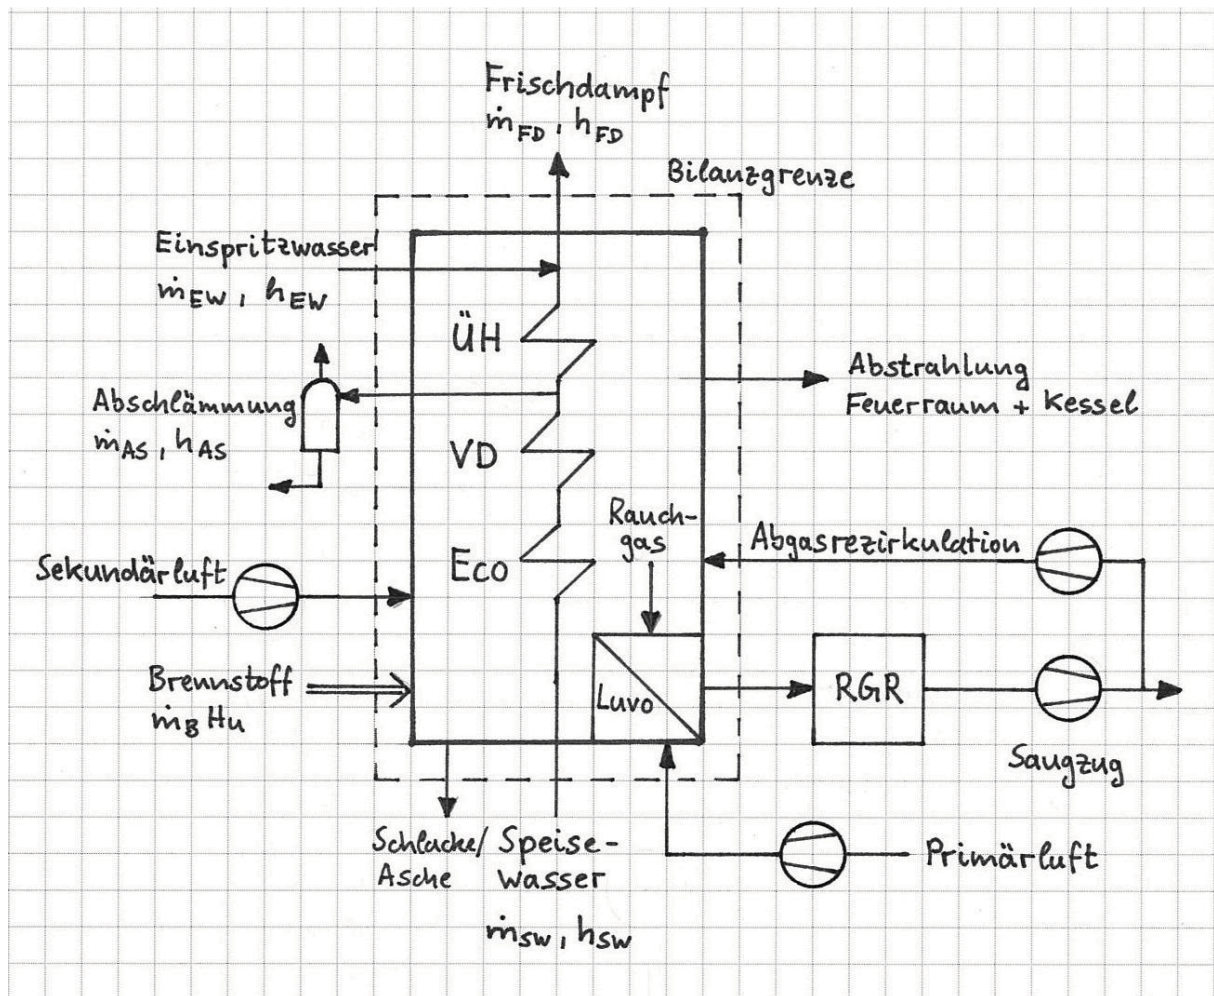 Frischdampf
ṁFD, hFD
Bilanzgrenze
Einspritzwasser
ṁEW, hEW
ÜH
Abstrahlung
Feuerraum + Kessel
Abschlämmung
ṁAS, hAS
VD
Rauch-
gas
Abgasrezirkulation
Sekundärluft
Eco
Brennstoff
ṁB Hu
Luvo
RGR
Saugzug
Schlacke/
Asche
Speise-
wasser
ṁSW, hSW
Primärluft